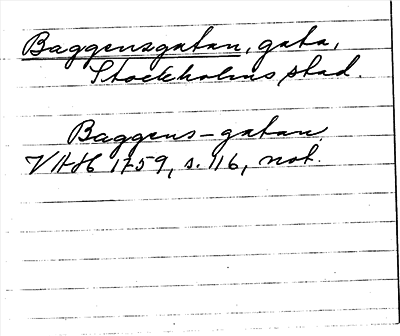 Baggensgatan, gata,
Stockholms stad.
Baggens-gatan
VAH 1759, s. 116, not.